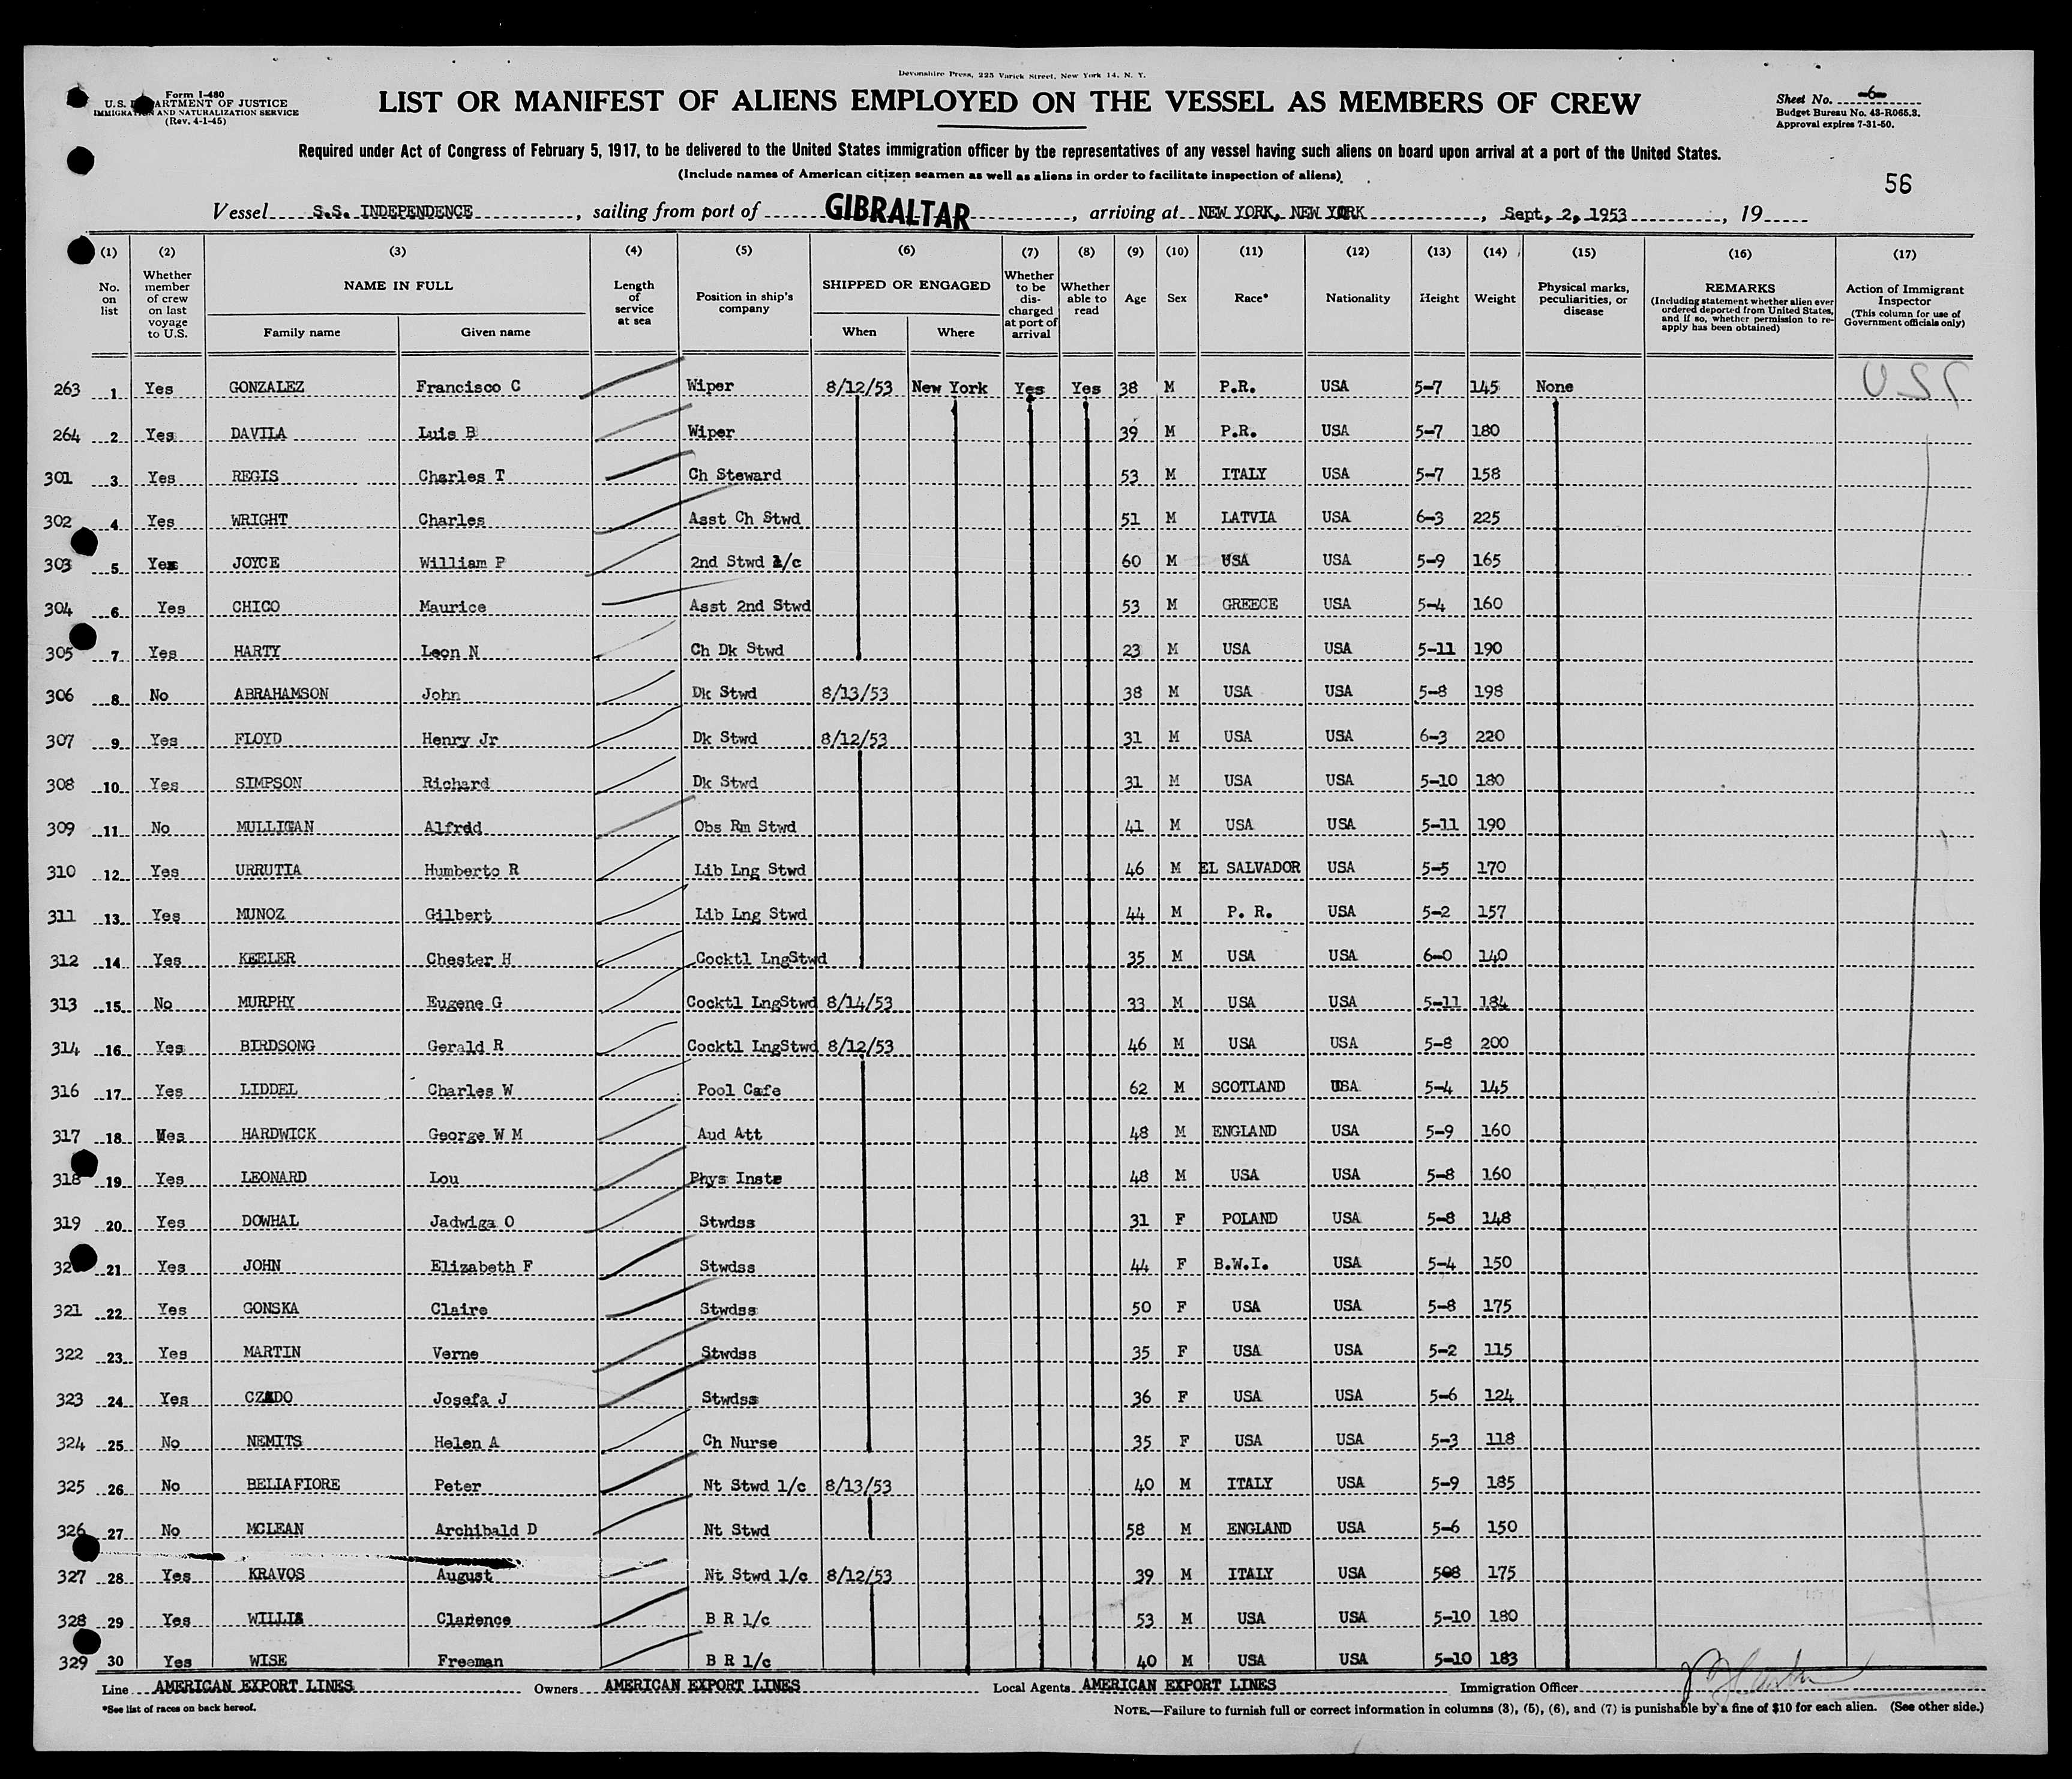 Devonshire Press, 225 Varick Street, New York 14, N. Y.
Form I-480
U.S. DEPARTMENT OF JUSTICE
IMMIGRATION AND NATURALIZATION SERVICE
(Rev. 4-1-45)
LIST OR MANIFEST OF ALIENS EMPLOYED ON THE VESSEL AS MEMBERS OF CREW
Sheet No. -6-
Budget Bureau No. 43-R065.3.
Approval expires 7-31-50.
Required under Act of Congress of February 5, 1917, to be delivered to the United States immigration officer by the representatives of any vessel having such aliens on board upon arrival at a port of the United States.
(Include names of American citizen seamen as well as aliens in order to facilitate inspection of aliens)
56
Vessel S.S. INDEPENDENCE, sailing from port of GIBRALTAR, arriving at NEW YORK, NEW YORK, Sept, 2, 1953, 19
(1) (2) (3) (4) (5) (6) (7) (8) (9) (10) (11) (12) (13) (14) (15) (16) (17)
No. on list
Whether member of crew on last voyage to U.S.
NAME IN FULL
Family name Given name
Length of service at sea
Position in ship's company
SHIPPED OR ENGAGED
When Where
Whether to be discharged at port of arrival
Whether able to read
Age
Sex
Race*
Nationality
Height
Weight
Physical marks, peculiarities, or disease
REMARKS
(Including statement whether alien ever ordered deported from United States, and if so, whether permission to re-apply has been obtained)
Action of Immigrant Inspector
(This column for use of Government officials only)
263 1 Yes GONZALEZ Francisco C Wiper 8/12/53 New York Yes Yes 38 M P.R. USA 5-7 145 None
264 2 Yes DAVILA Luis B Wiper 39 M P.R. USA 5-7 180
301 3 Yes REGIS Charles T Ch Steward 53 M ITALY USA 5-7 158
302 4 Yes WRIGHT Charles Asst Ch Stwd 51 M LATVIA USA 6-3 225
303 5 Yes JOYCE William P 2nd Stwd 1/c 60 M USA USA 5-9 165
304 6 Yes CHICO Maurice Asst 2nd Stwd 53 M GREECE USA 5-4 160
305 7 Yes HARTY Leon N Ch Dk Stwd 23 M USA USA 5-11 190
306 8 No ABRAHAMSON John Dk Stwd 8/13/53 38 M USA USA 5-8 198
307 9 Yes FLOYD Henry Jr Dk Stwd 8/12/53 31 M USA USA 6-3 220
308 10 Yes SIMPSON Richard Dk Stwd 31 M USA USA 5-10 180
309 11 No MULLIGAN Alfred Obs Rm Stwd 41 M USA USA 5-11 190
310 12 Yes URRUTIA Humberto R Lib Lng Stwd 46 M EL SALVADOR USA 5-5 170
311 13 Yes MUNOZ Gilbert Lib Lng Stwd 44 M P. R. USA 5-2 157
312 14 Yes KEELER Chester H Cocktl LngStwd 35 M USA USA 6-0 140
313 15 No MURPHY Eugene G Cocktl LngStwd 8/14/53 33 M USA USA 5-11 184
314 16 Yes BIRDSONG Gerald R Cocktl LngStwd 8/12/53 46 M USA USA 5-8 200
316 17 Yes LIDDEL Charles W Pool Cafe 62 M SCOTLAND USA 5-4 145
317 18 Yes HARDWICK George W M Aud Att 48 M ENGLAND USA 5-9 160
318 19 Yes LEONARD Lou Phys Instr 48 M USA USA 5-8 160
319 20 Yes DOWHAL Jadwiga O Stwdss 31 F POLAND USA 5-8 148
32 21 Yes JOHN Elizabeth F Stwdss 44 F B.W.I. USA 5-4 150
321 22 Yes GONSKA Claire Stwdss 50 F USA USA 5-8 175
322 23 Yes MARTIN Verne Stwdss 35 F USA USA 5-2 115
323 24 Yes CZADO Josefa J Stwdss 36 F USA USA 5-6 124
324 25 No NEMITS Helen A Ch Nurse 35 F USA USA 5-3 118
325 26 No BELIAFIORE Peter Nt Stwd 1/c 8/13/53 40 M ITALY USA 5-9 185
326 27 No MCLEAN Archibald D Nt Stwd 58 M ENGLAND USA 5-6 150
327 28 Yes KRAVOS August Nt Stwd 1/c 8/12/53 39 M ITALY USA 508 175
328 29 Yes WILLIS Clarence B R 1/c 53 M USA USA 5-10 180
329 30 Yes WISE Freeman B R 1/c 40 M USA USA 5-10 183
Line AMERICAN EXPORT LINES Owners AMERICAN EXPORT LINES Local Agents AMERICAN EXPORT LINES Immigration Officer
*See list of races on back hereof.
NOTE.—Failure to furnish full or correct information in columns (3), (5), (6), and (7) is punishable by a fine of $10 for each alien. (See other side.)